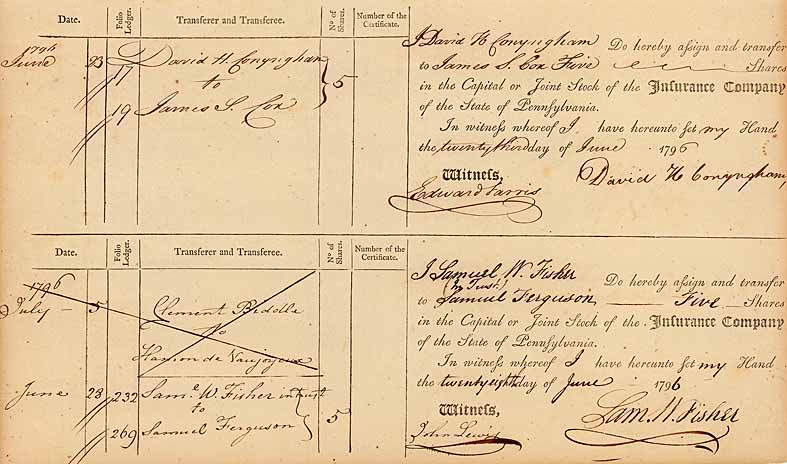 Date. Folio Ledger. Transferer and Transferee. No of Shares. Number of the Certificate.
1796
June 23 17 David H. Conyngham
to 5
19 James S. Cox
I David H Conyngham Do hereby aſsign and transfer
to James S. Cox Five Shares
in the Capital or Joint Stock of the Inſurance Company
of the State of Pennſylvania.
In witneſs whereof I have hereunto ſet my Hand
the twenty third day of June 1796
Witneſs, David H Conyngham
Edward
Date. Folio Ledger. Transferer and Transferee. No of Shares. Number of the Certificate.
1796
July 5 Clement Biddle
to
June 28 232 Sam. W. Fisher in trust
to 5
269 Samuel Ferguson
I Samuel W. Fisher
(in Trust) Do hereby aſsign and transfer
to Samuel Ferguson Five Shares
in the Capital or Joint Stock of the Inſurance Company
of the State of Pennſylvania.
In witneſs whereof I have hereunto ſet my Hand
the twenty eighth day of June 1796
Witneſs, Sam. W. Fisher
John Lewis